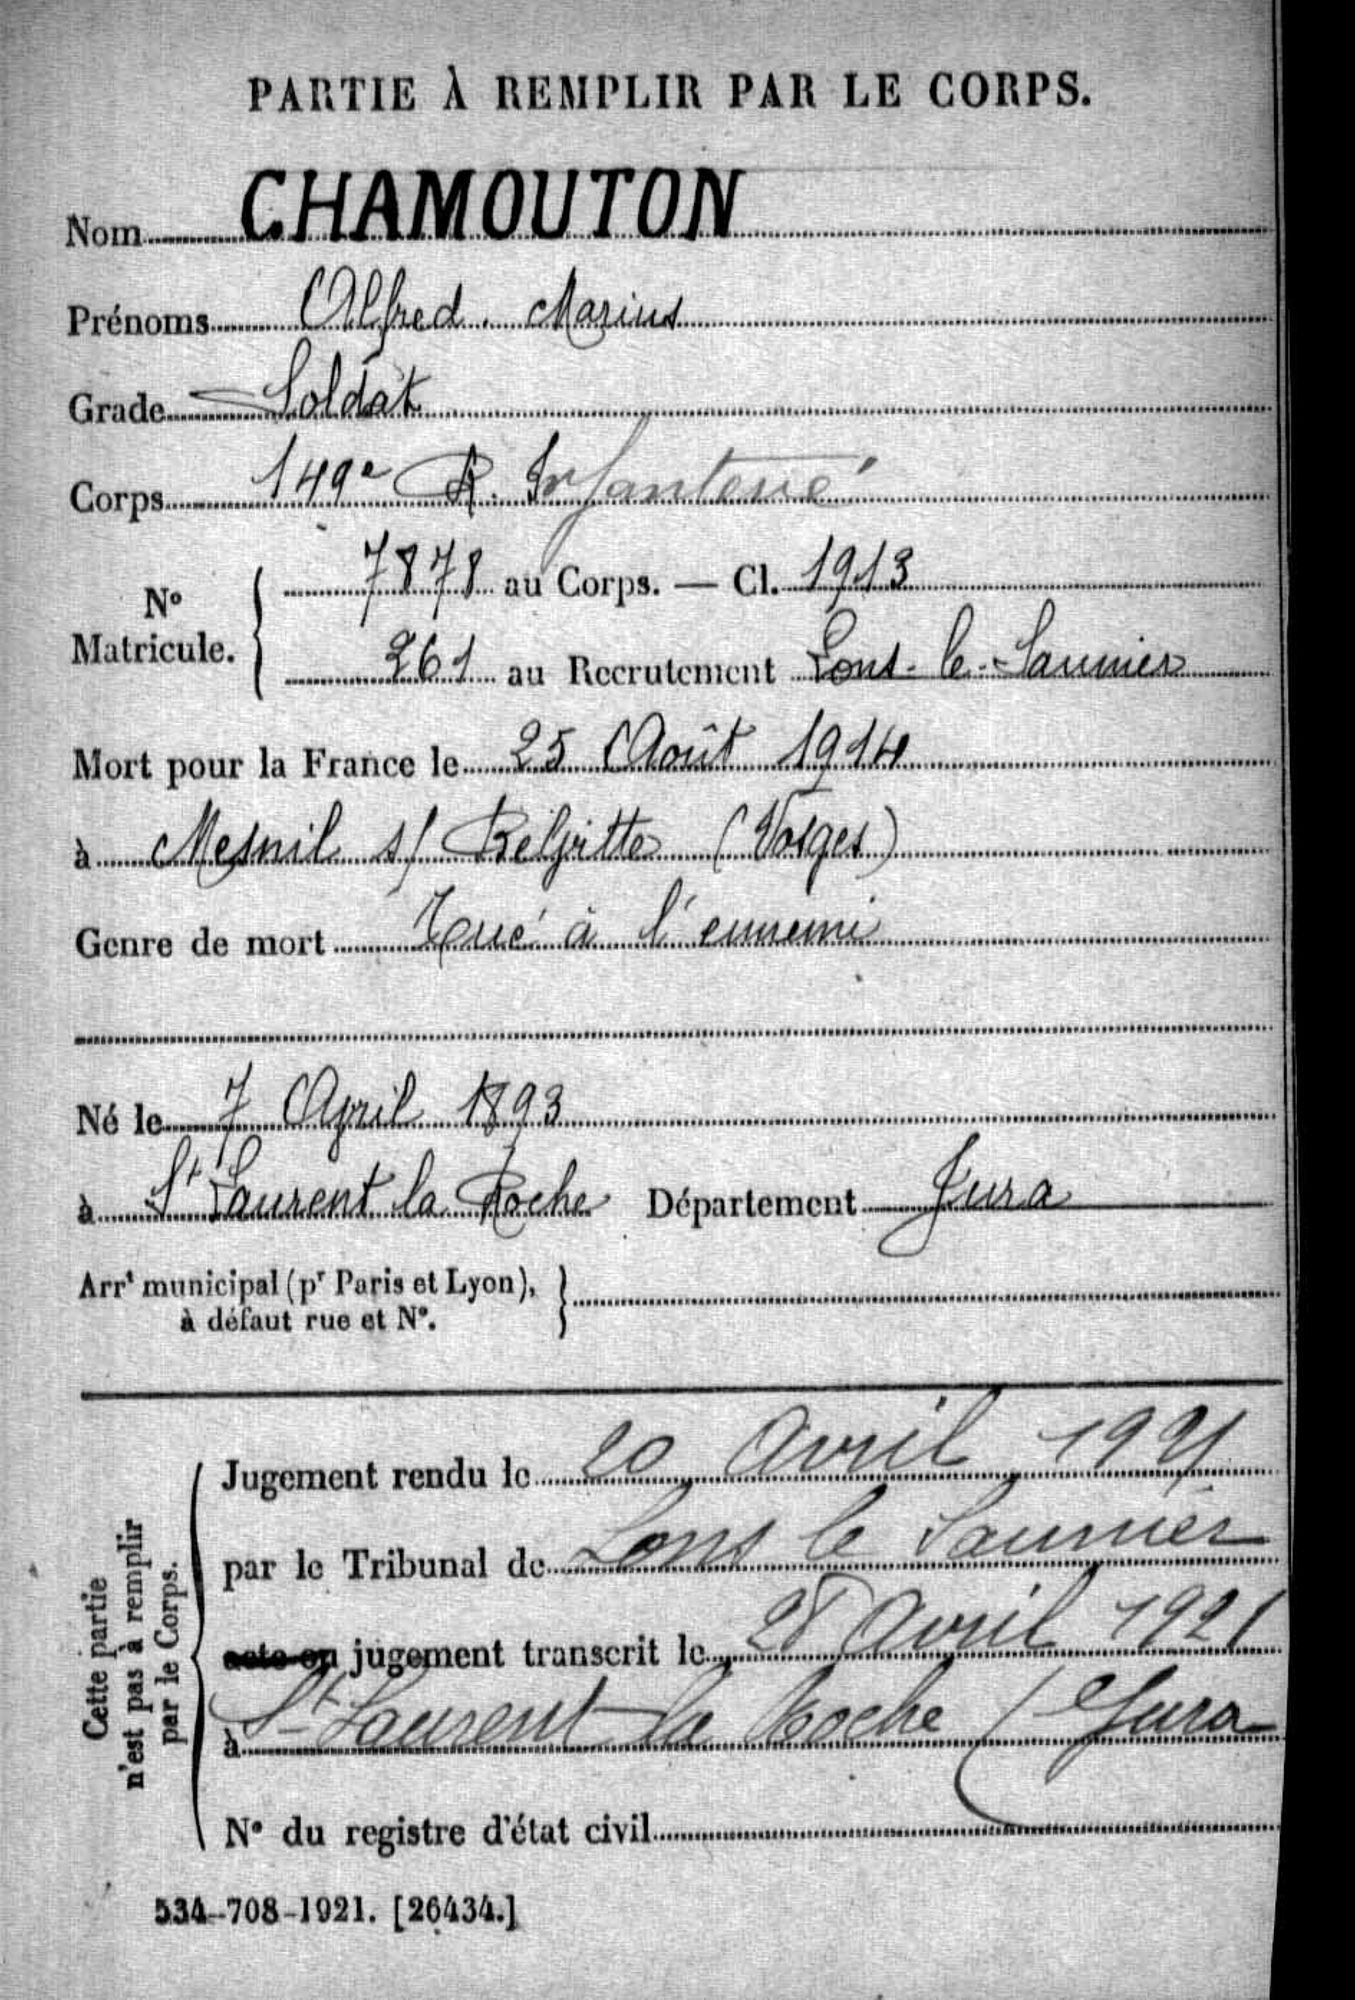 PARTIE À REMPLIR PAR LE CORPS.
Nom CHAMOUTON
Prénoms Alfred Marius
Grade Soldat
Corps 149e R. Infanterie
N° Matricule. 7878 au Corps. — Cl. 1913
261 au Recrutement Lons-le-Saunier
Mort pour la France le 25 Août 1914
à Mesnil s/ Belvitte (Vosges)
Genre de mort Tué à l'ennemi
Né le 7 April 1893
à St Laurent la Roche Département Jura
Arrt municipal (pr Paris et Lyon),
à défaut rue et N°.
Cette partie
n'est pas à remplir
par le Corps.
Jugement rendu le 20 Avril 1921
par le Tribunal de Lons le Saunier
acte ou jugement transcrit le 28 Avril 1921
à St Laurent la Roche (Jura
N° du registre d'état civil
534-708-1921. [26434.]